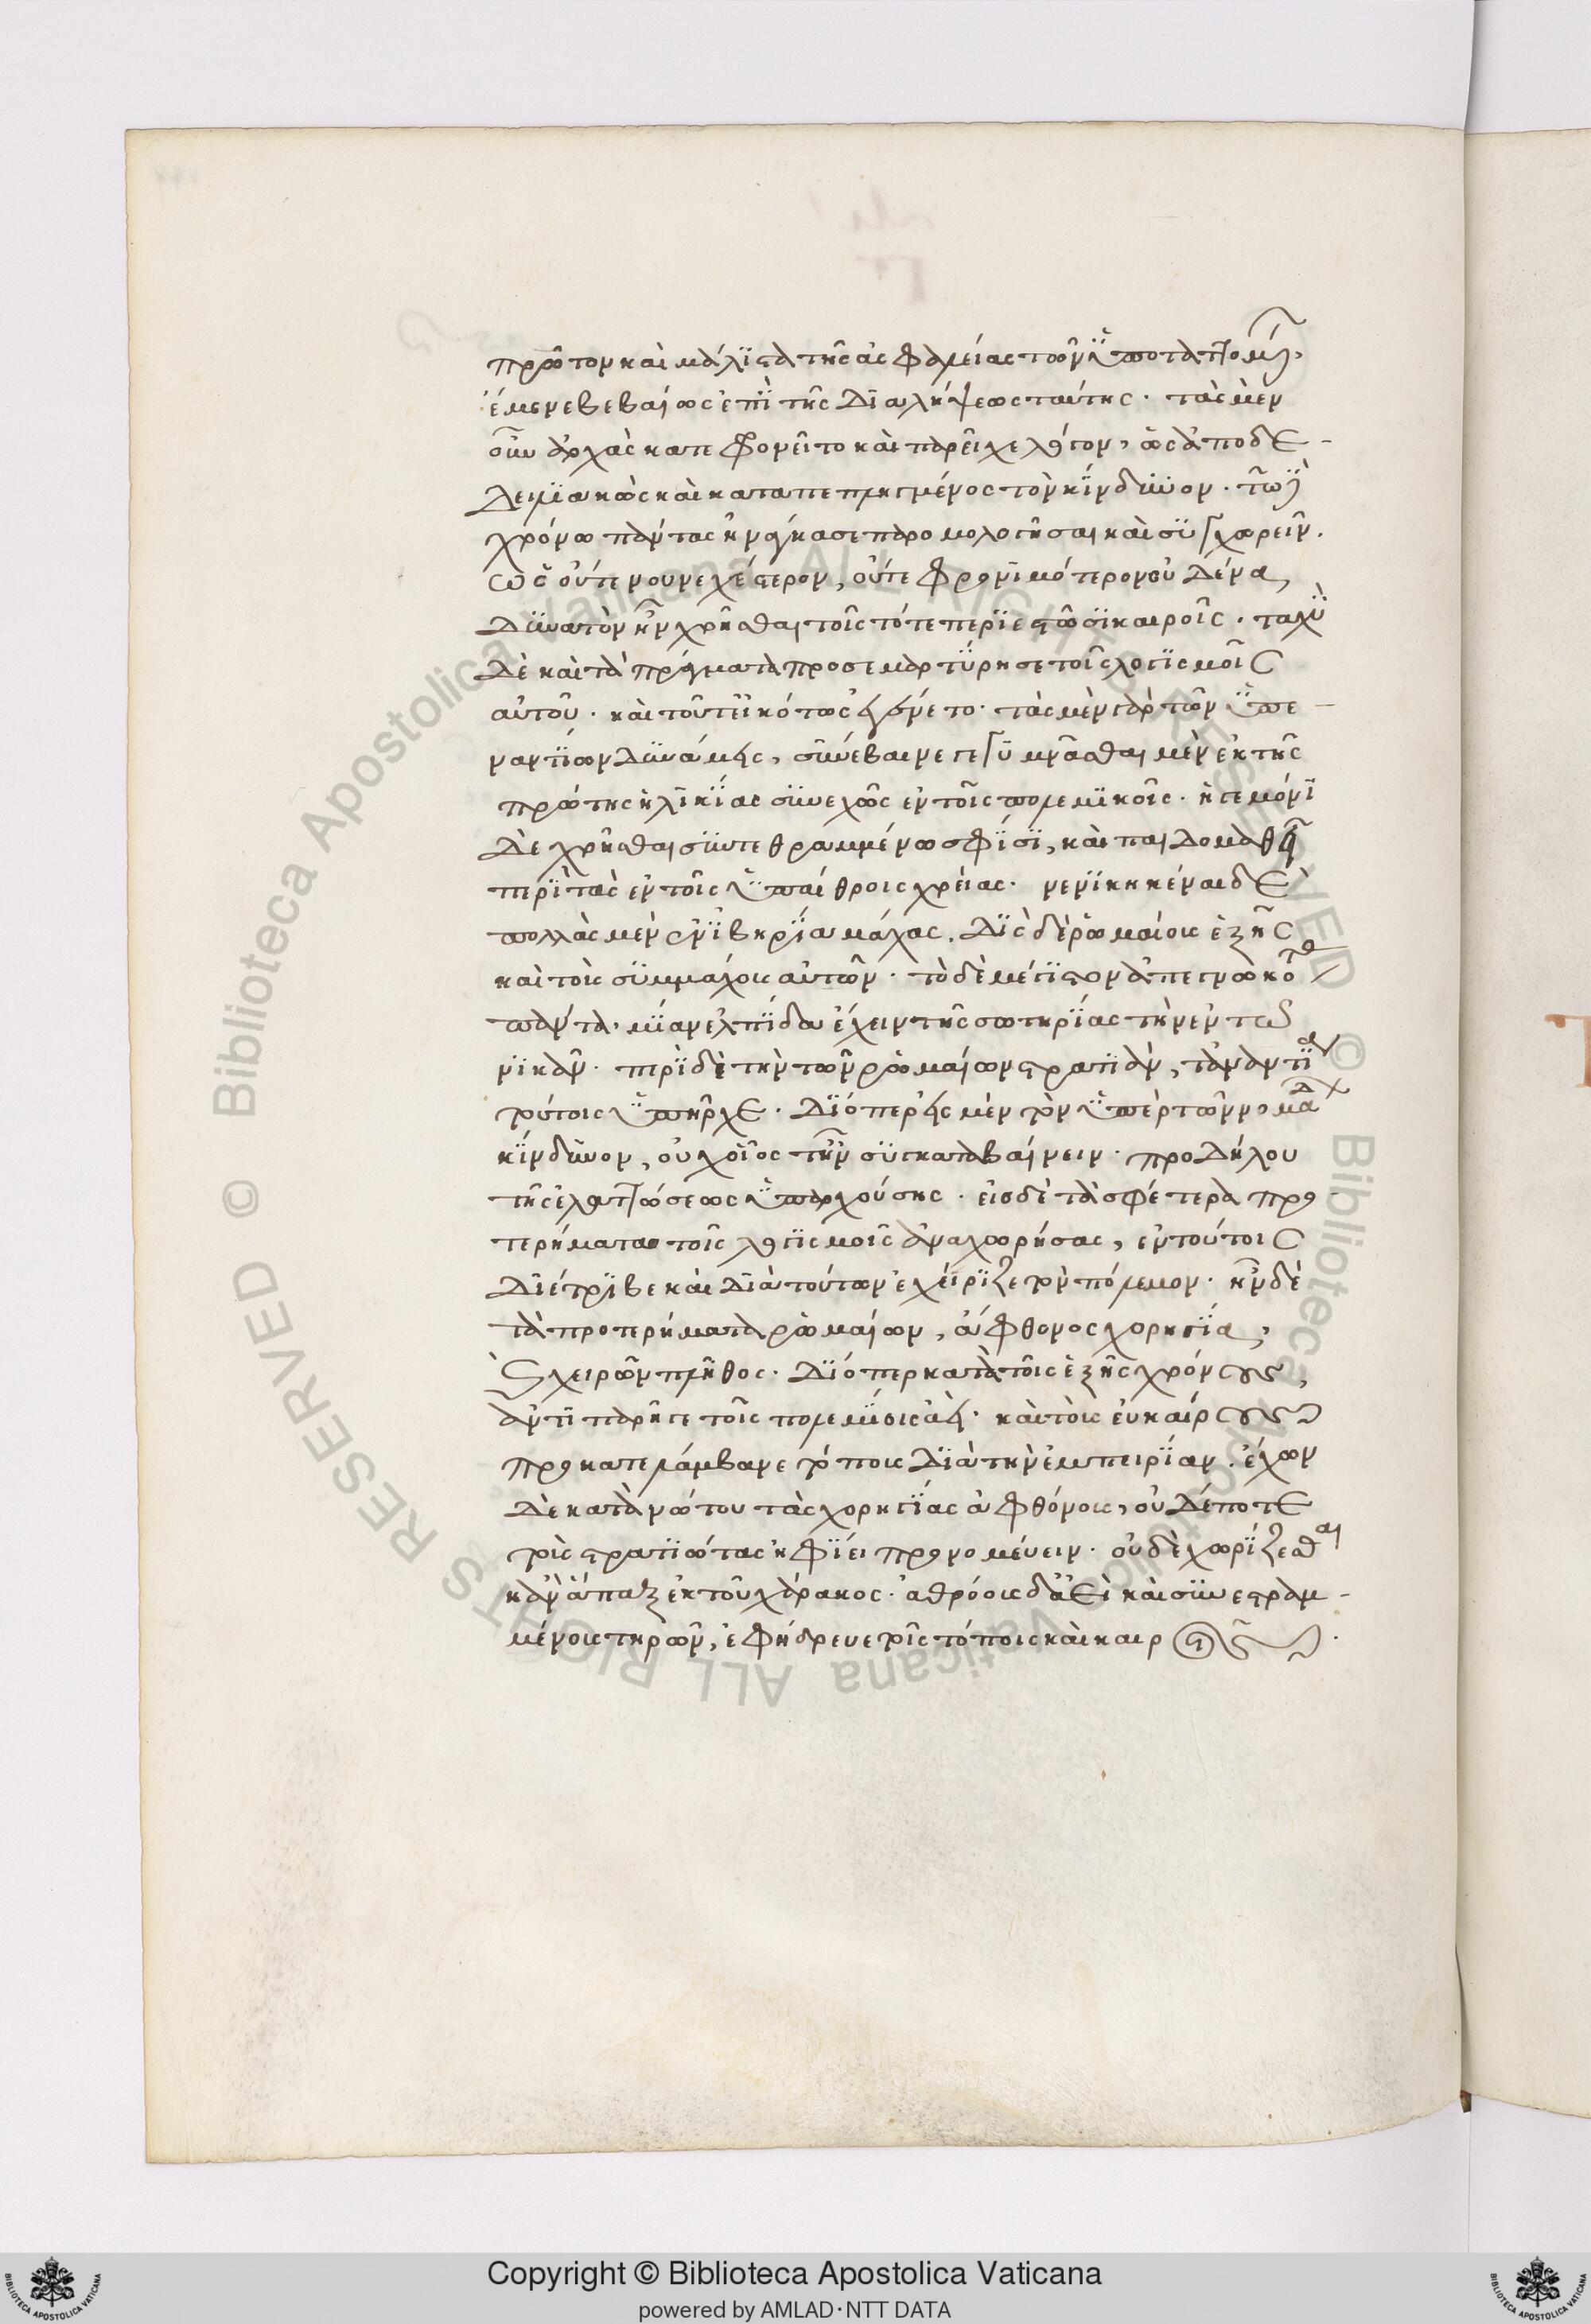 πρῶτον καὶ μάλϊστα τῆς ἀσφαλείας τῶν ϋποταττομέ(νων),
ἔμενε βεβαίως ἐπῒ τῆς δϊαλήψεως ταύτης. τὰς μὲν
οὖν ἀρχὰς κατεφρονεῖτο καὶ παρεῖχε λόγον, ὡς ἀποδε-
δειλϊακὼς καὶ καταπεπληγμένος τὸν κίνδϋνον. τῶϊ
χρόνω πάντας ἠνάγκασε παρομολογῆσαι καὶ σϋγχωρεῖν.
ὡς οὔτε νουνεχέστερον, οὔτε φρονϊμότερον οὐδένα,
δϋνατὸν ἦν χρῆσθαι τοῖς τότε περϊεστῶσϊ καιροῖς. ταχϋ
δὲ καὶ τὰ πράγματα προσεμαρτύρησε τοῖς λογϊσμοῖς
αὐτοῦ. καὶ τοῦτ εἰκότως ἐγένετο. τὰς μὲν γὰρ τῶν ϋπε-
ναντίων δϋνάμεις, σϋνέβαινε γεγϋμνᾶσθαι μὲν ἐκ τῆς
πρώτης ἡλϊκίας σϋνεχῶς ἐν τοῖς πολεμϊκοῖς. ἡγεμόνϊ
δὲ χρῆσθαι σϋντεθραμμένω σφίσϊ, καὶ παιδομαθεῖ
περὶ τὰς ἐν τοῖς ϋπαίθροις χρείας. νενϊκηκέναι δὲ
πολλὰς μὲν ἐν ϊβηρία μάχας. δὶς δὲ ῥωμαίους ἑξῆς
καὶ τοὺς σϋμμάχους αὐτῶν. τὸ δὲ μέγϊστον ἀπεγνωκότα(ς)
πάντα, μίαν ἐλπίδα ἔχειν τῆς σωτηρίας τὴν ἐν τῶ
νϊκᾶν. περὶ δὲ τὴν τῶν ῥωμαίων στρατϊὰν, τἀναντία
τούτοις ϋπῆρχε. δϊόπερ εἰς μὲν τὸν ϋπὲρ τῶν ὅλων
κίνδϋνον, οὐχ οἷός τ ἦν σϋγκαταβαίνειν. προδήλου
τῆς ἐλαττώσεως ϋπαρχούσης. εἰς δὲ τὰ σφέτερα προ
τερήματα τοῖς λογϊσμοῖς ἀναχωρήσας, ἐν τούτοις
δϊέτρϊβε καὶ δϊὰ τούτων ἐχείρϊζε τὸν πόλεμον. ἦν δὲ
τὰ προτερήματα ῥωμαίων, ἄφθονος χορηγία,
καὶ χειρῶν πλῆθος. δϊόπερ κατὰ τοὺς ἑξῆς χρόνους,
ἀντϊπαρῆγε τοῖς πολεμίοις ἀεὶ. καὶ τοὺς εὐκαίρους
προκατελάμβανε τόπους δϊὰ τὴν ἐμπειρίαν. ἔχων
δὲ κατὰ νώτου τὰς χορηγίας ἀφθόνους, οὐδέποτε
τοὺς στρατϊώτας ἠφίει προνομεύειν. οὐδὲ χωρίζεσθαι
καθάπαξ ἐκ τοῦ χάρακος. ἀθρόους δ ἀεὶ καὶ σϋνεστραμ-
μένους τηρῶν, ἐφήδρευε τοῖς τόποις καὶ καιροῖς.